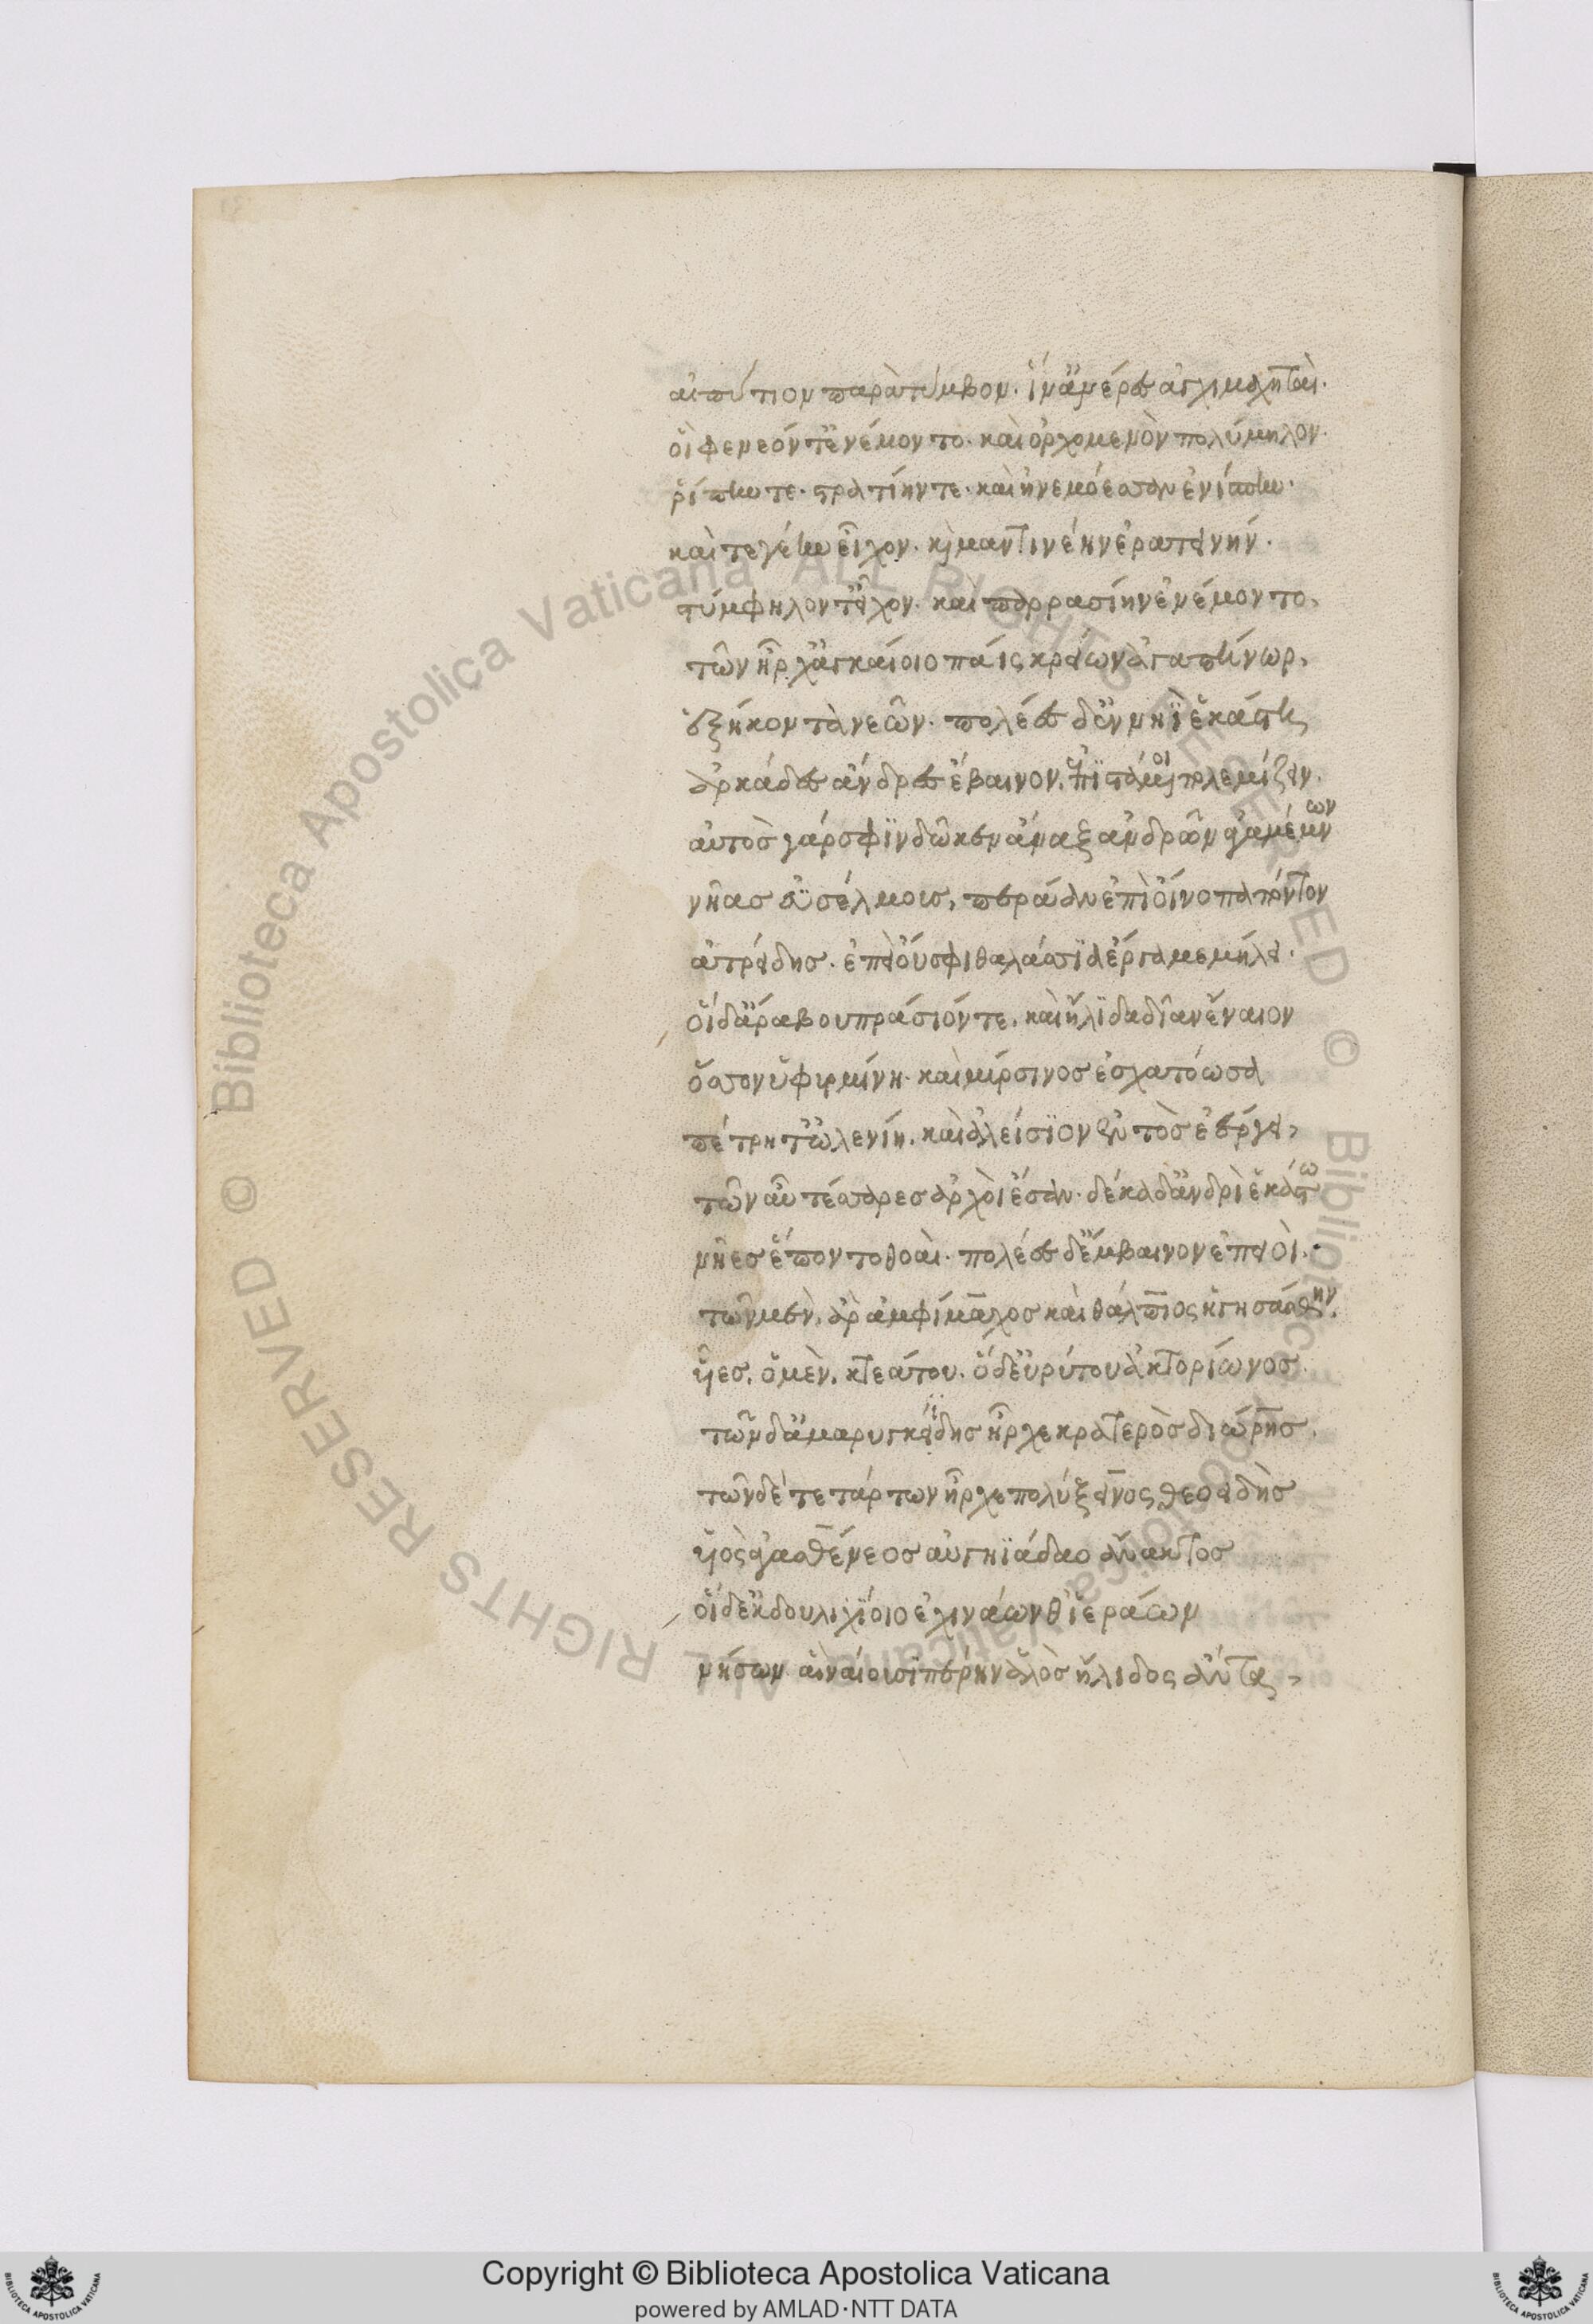 αἰπύτιον παρὰ τύμβον. ἵν' ἀνέρες ἀγχιμαχηταὶ.
οἳ φενεόν τ' ἐνέμοντο. καὶ ὀρχομενὸν πολύμηλον.
ῥίπην τε. στρατίην τε. καὶ ἠνεμόεσσαν ἐνίσπην.
καὶ τεγέην εἶχον. κὶ μαντινέην ἐρατεινήν.
στύμφηλον τ' εἶχον. καὶ παρρασίην ἐνέμοντο.
τῶν ἦρχ' ἀγκαίοιο πάϊς κρείων ἀγαπήνωρ.
ἑξήκοντα νεῶν. πολέες δ' ἐν νηῒ ἑκάστῃ
ἀρκάδες ἄνδρες ἔβαινον. ἐπιστάμενοι πολεμίζειν.
αὐτὸς γάρ σφϊν δῶκεν ἄναξ ἀνδρῶν ἀγαμέμνων
νῆας ἐϋσέλμους, περάαν ἐπὶ οἴνοπα πόντον
ἀτρείδης. ἐπεὶ οὔ σφι θαλάσσϊα ἔργα μεμήλει.
οἳ δ' ἄρα βουπράσιόν τε. καὶ ἤλϊδα δῖαν ἔναιον
ὅσσον ὑφ' υρμίνη. καὶ μύρσινος ἐσχατόωσα
πέτρη τ' ὠλενίη. καὶ ἀλείσϊον ἐντὸς ἐέργει,
τῶν αὖ τέσσαρες ἀρχοὶ ἔσαν. δέκα δ' ἀνδρὶ ἑκάστω
νῆες ἕποντο θοαὶ. πολέες δ' ἔμβαινον ἐπειοὶ.
τῶν μὲν, ἀρ' ἀμφίμαχος καὶ θάλπιος ἡγησάσθην.
υἷες, ὁ μὲν, κτεάτου. ὁ δ' εὐρύτου ἀκτορίωνος.
τῶν δ' ἀμαρυγκείδης ἦρχε κρατερὸς διώρης.
τῶν δὲ τετάρτων ἦρχε πολύξεινος θεοειδὴς
υἱὸς ἀγασθένεος αὐγηϊάδαο ἄνακτος
οἳ δ' ἐκ δουλιχϊόιο ἐχινάων θ' ἱεράων
νήσων αἳ ναίουσι πέρην ἁλὸς ἤλιδος ἄντα,
Copyright © Biblioteca Apostolica Vaticana
powered by AMLAD·NTT DATA